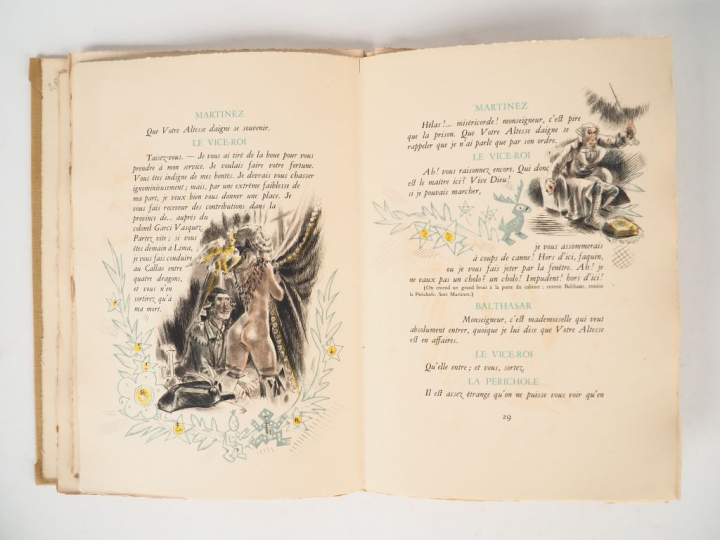 MARTINEZ
Que Votre Altesse daigne se souvenir.
LE VICE-ROI
Taisez-vous. — Je vous ai tiré de la boue pour vous
prendre à mon service. Je voulais faire votre fortune.
Vous êtes indigne de mes bontés. Je devrais vous chasser
ignominieusement; mais, par une extrême faiblesse de
ma part, je veux bien vous donner une place. Je
vous fais receveur des contributions dans la
province de... auprès du
colonel Garci Vasquez.
Partez vite; si vous
êtes demain à Lima,
je vous fais conduire
au Callao entre
quatre dragons,
et vous n'en
sortirez qu'à
ma mort.
MARTINEZ
Hélas!... miséricorde! monseigneur, c'est pire
que la prison. Que Votre Altesse daigne se
rappeler que je n'ai parlé que par son ordre.
LE VICE-ROI
Ah! vous raisonnez encore. Qui donc
est le maître ici? Vive Dieu!
si je pouvais marcher,
je vous assommerais
à coups de canne! Hors d'ici, faquin,
ou je vous fais jeter par la fenêtre. Ah! je
ne vaux pas un cholo? un cholo! Impudent! hors d'ici!
(On entend un grand bruit à la porte du cabinet : rentrent Balthasar, ensuite
la Périchole. Sort Martinez.)
BALTHASAR
Monseigneur, c'est mademoiselle qui veut
absolument entrer, quoique je lui dise que Votre Altesse
est en affaires.
LE VICE-ROI
Qu'elle entre; et vous, sortez.
LA PÉRICHOLE
Il est assez étrange qu'on ne puisse vous voir qu'en
29